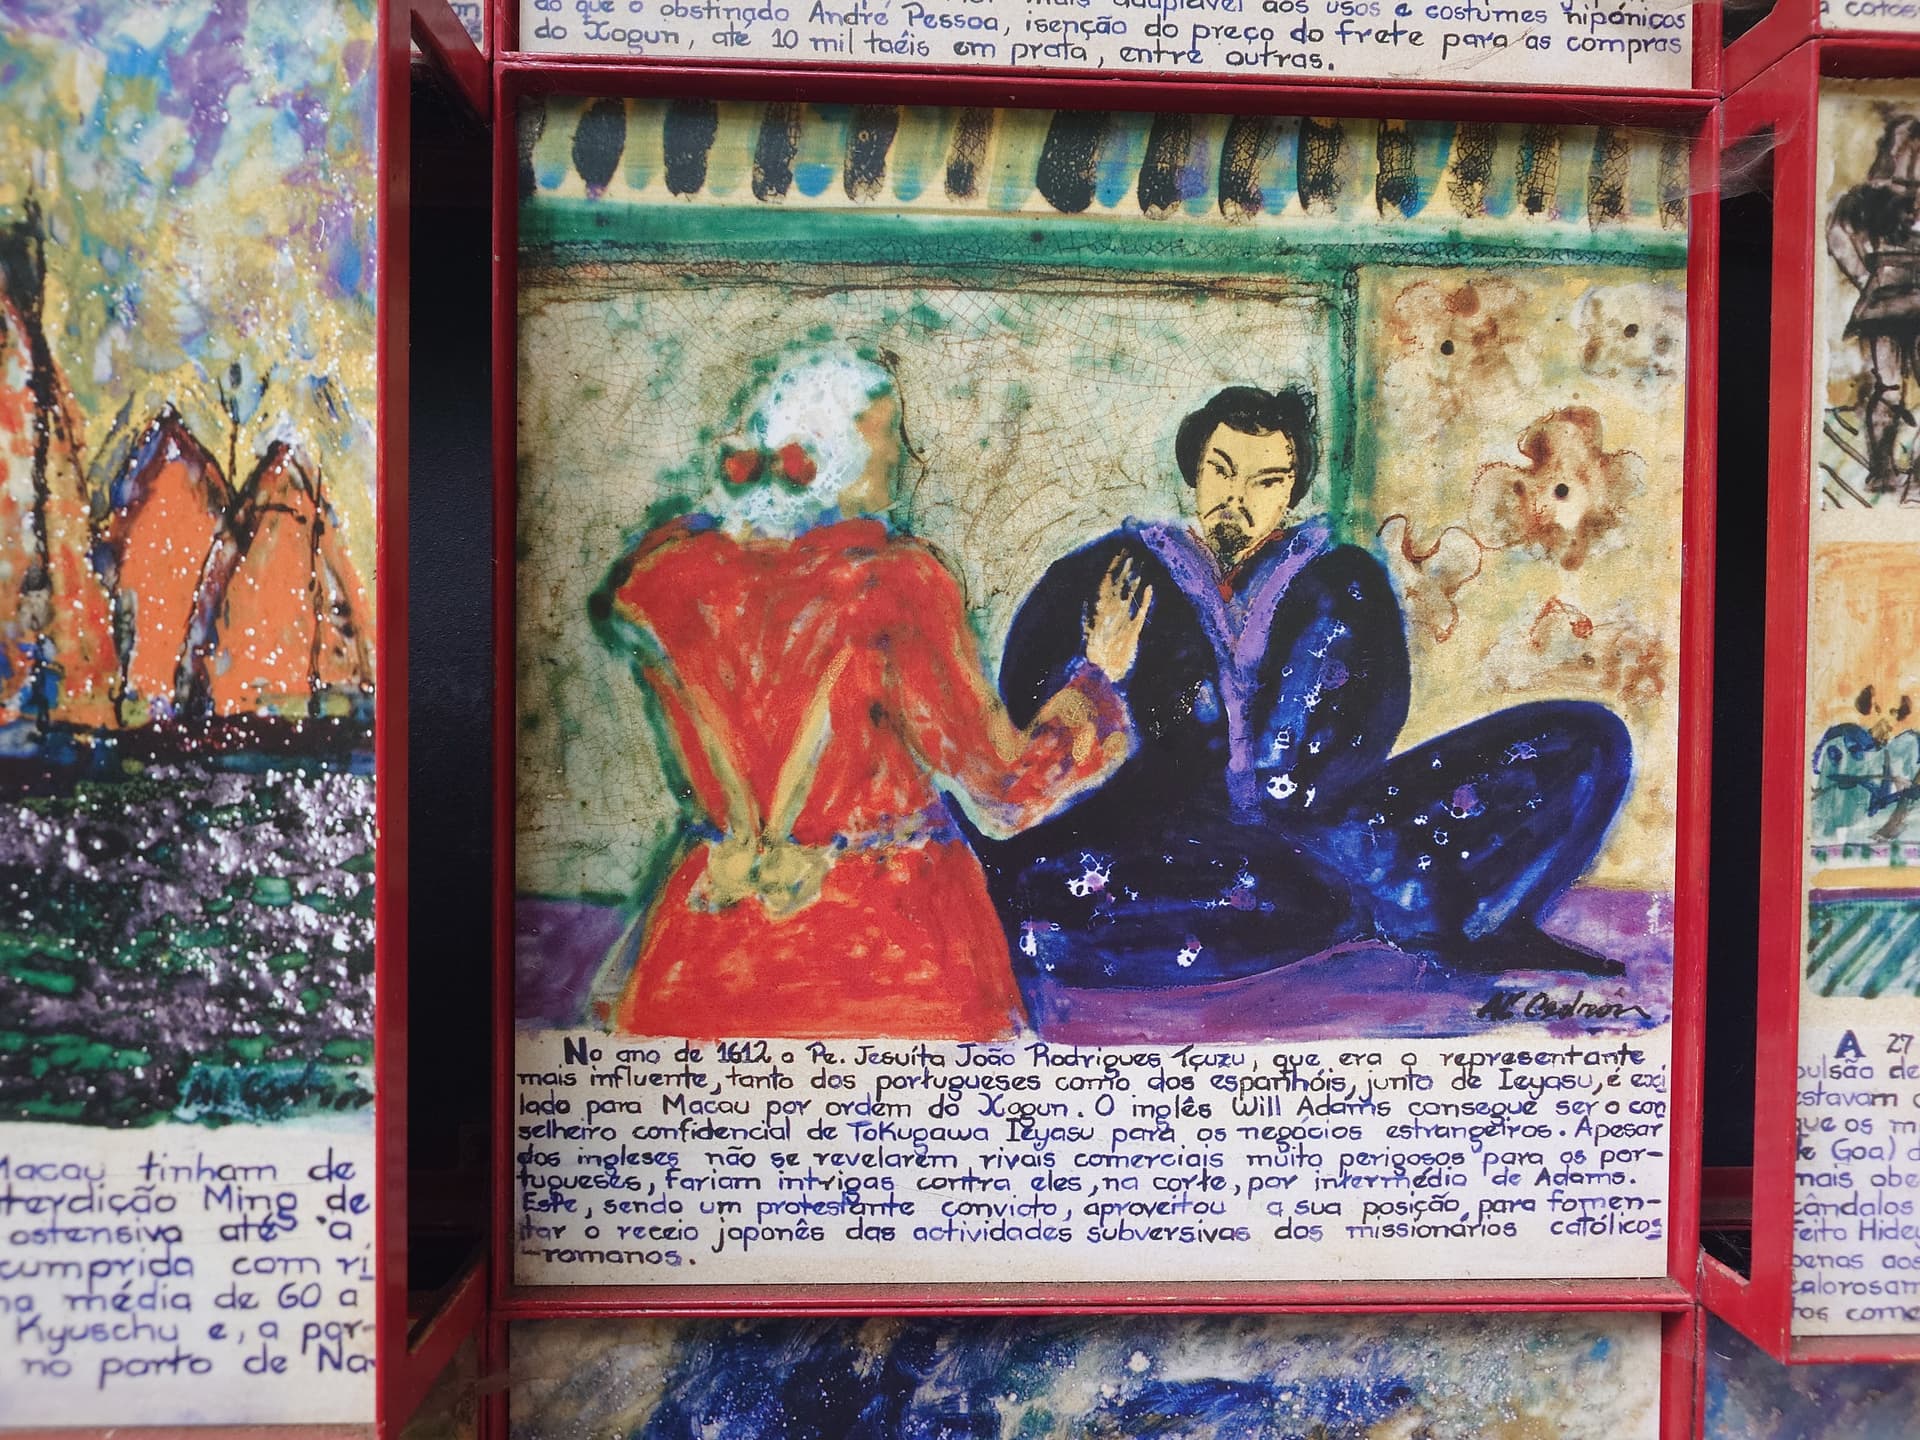 do que o obstinado André Pessoa, isenção do preço do frete para as compras
do Xogun, até 10 mil taéis em prata, entre outras.
Al Cedrón
No ano de 1612 o Pe. Jesuíta João Rodrigues Tçuzu, que era o representante
mais influente, tanto dos portugueses como dos espanhóis, junto de Ieyasu, é exi
lado para Macau por ordem do Xogun. O inglês Will Adams consegue ser o con
selheiro confidencial de Tokugawa Ieyasu para os negócios estrangeiros. Apesar
dos ingleses não se revelarem rivais comerciais muito perigosos para os por-
tugueses, fariam intrigas contra eles, na corte, por intermédio de Adams.
Este, sendo um protestante convicto, aproveitou a sua posição, para fomen-
tar o receio japonês das actividades subversivas dos missionários católicos
-romanos.
Macau tinham de
terdição Ming de
ostensiva até a
cumprida com ri
na média de 60 a
Kyuschu e, a par-
no porto de Na-
A 27
pulsão de
estavam
que os m
de Goa) d
mais obe
cândalos
feito Hidey
penas aos
calorosam
ros come